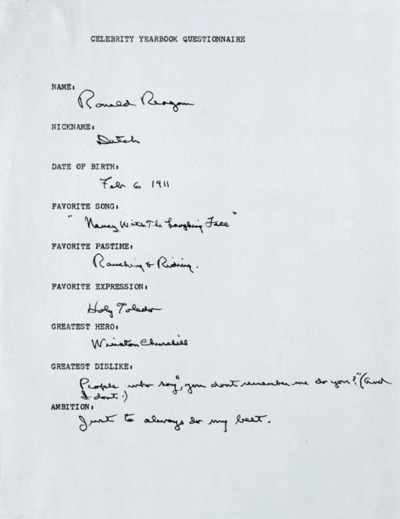 CELEBRITY YEARBOOK QUESTIONNAIRE
NAME:
Ronald Reagan
NICKNAME:
Dutch
DATE OF BIRTH:
Feb 6 1911
FAVORITE SONG:
"Nancy With The Laughing Face"
FAVORITE PASTIME:
Ranching & Riding.
FAVORITE EXPRESSION:
Holy Toledo
GREATEST HERO:
Winston Churchill
GREATEST DISLIKE:
People who say, "you dont remember me do you?" (and
I dont.)
AMBITION:
Just to always do my best.